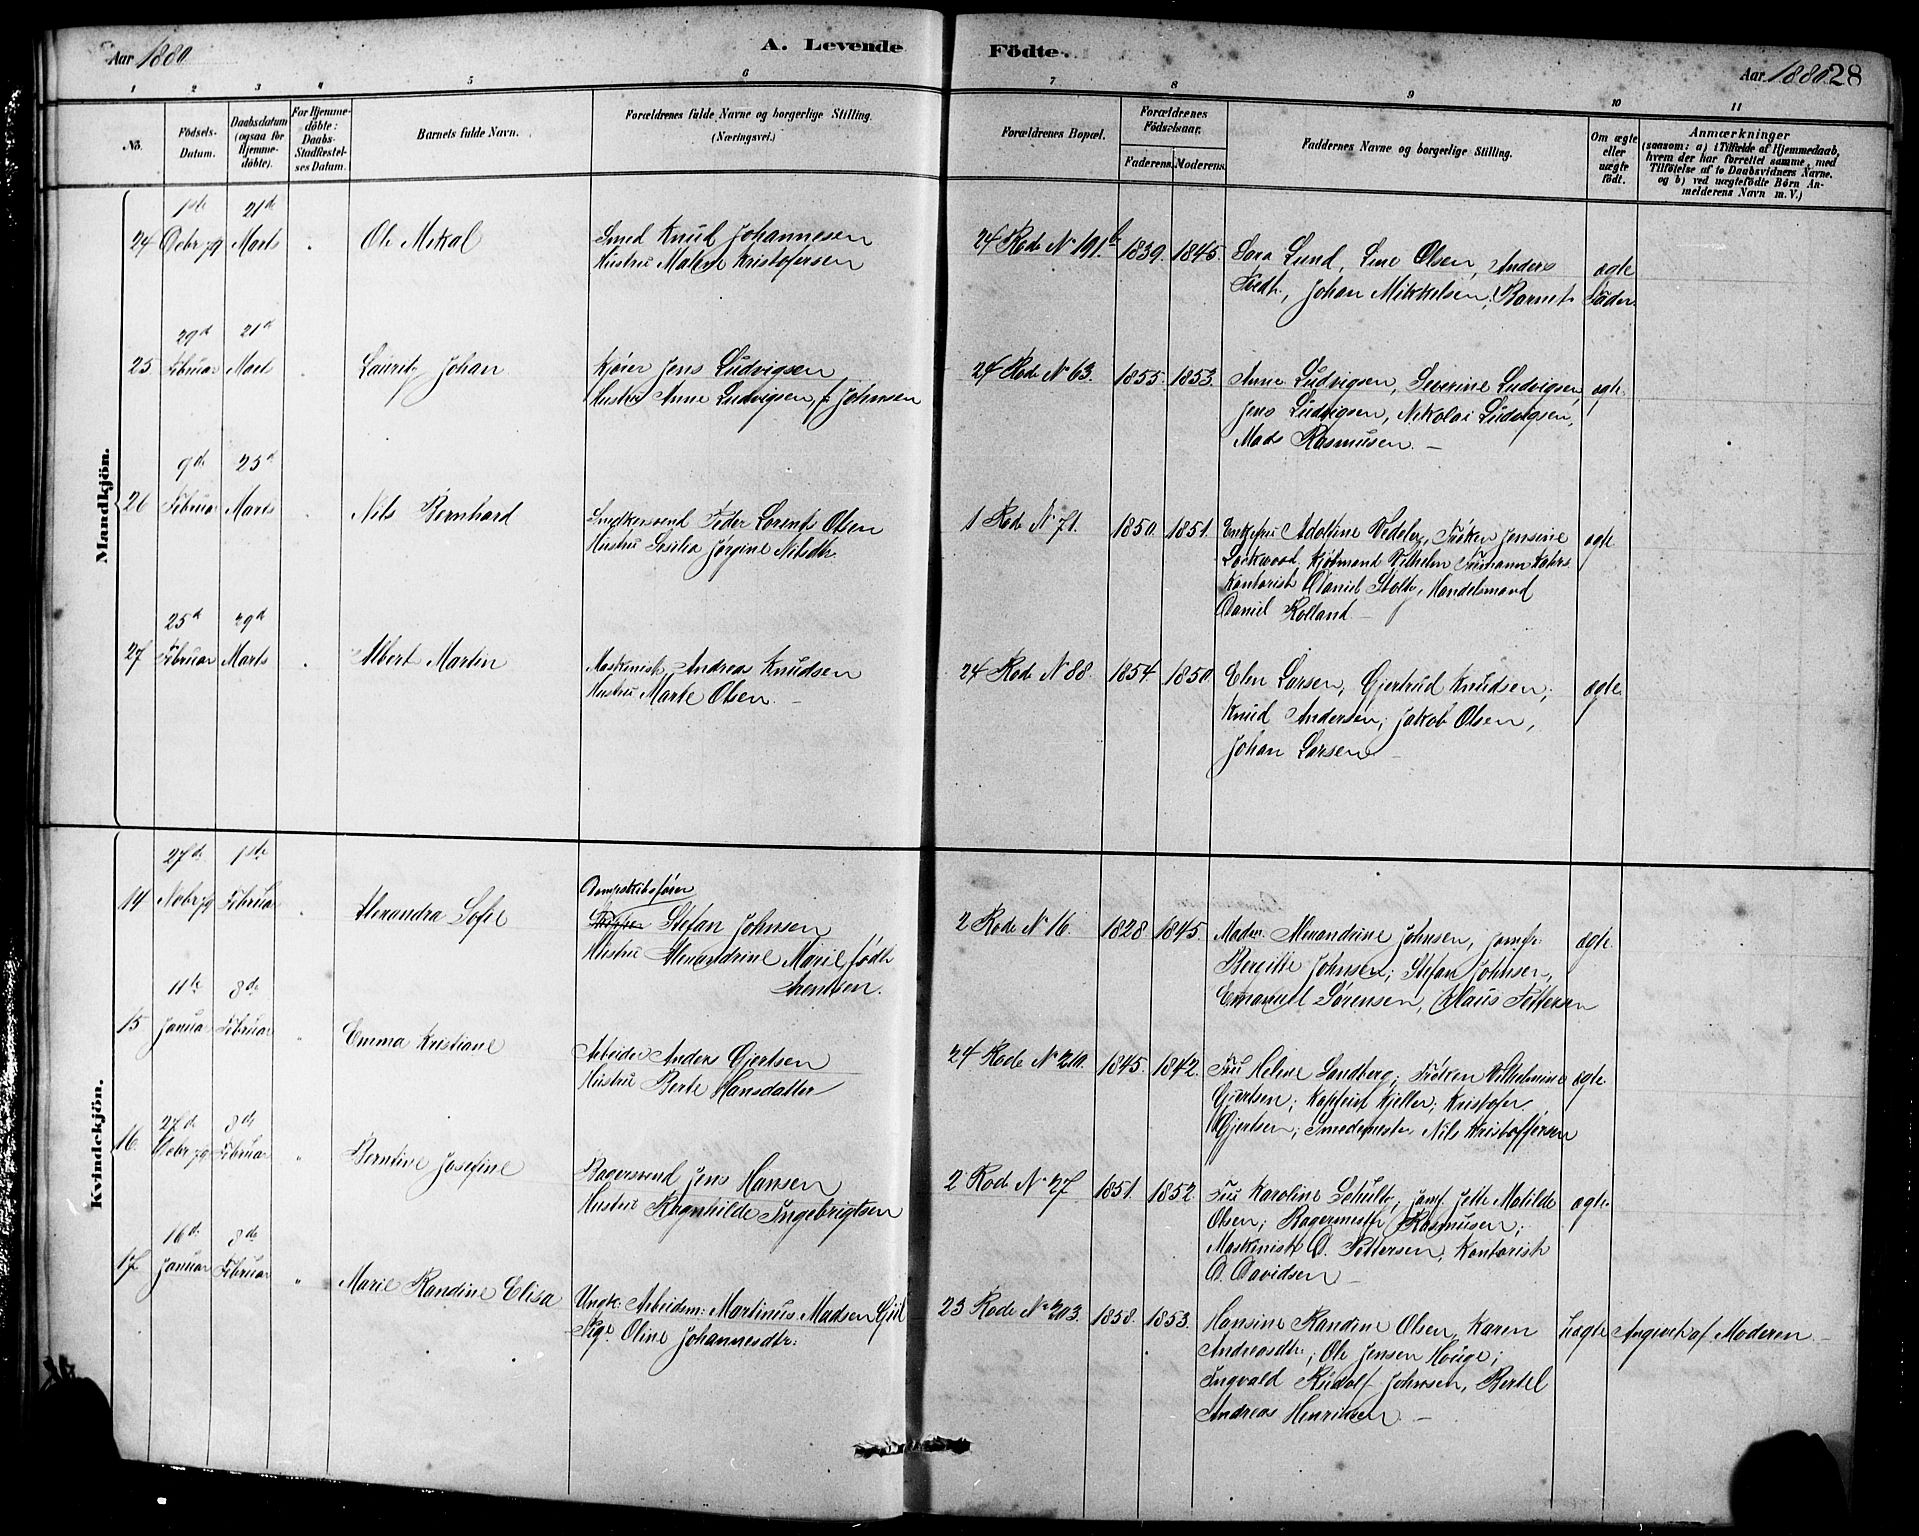 Aar 1880.
A. Levende
Födte.
Aar 1880. 28
1 2 3 4 5 6 7 8 9 10 11
No.
Födsels-Datum.
Daabsdatum (ogsaa for Hjemme-döbte).
For Hjemme-döbte: Daabs-Stadfæstel-ses Datum.
Barnets fulde Navn.
Forældrenes fulde Navne og borgerlige Stilling. (Næringsvei.)
Forældrenes Bopæl.
Forældrenes Födselsaar.
Faderens. Moderens.
Faddernes Navne og borgerlige Stilling.
Om ægte eller uægte födt.
Anmærkninger
(saasom: a) i Tilfælde af Hjemmedaab,
hvem der har forrettet samme, med
Tilföielse af to Daabsvidners Navne.
og b) ved uægtefödte Börn An-
melderens Navn m. V.)
Mandkjön.
1ste 21d
24 Marts Ole Mikal Smed Knud Johannesen 24 Rode No 191b 1839. 1845. Lund, Line Olsen, Anders ægte
Hustru Malene Kristofersen
Johan Mikkelsen, Barnets Fader.
29d 21d
25. Februar Marts Laurits Johan Kjører Jens Ludvigsen 24 Rode No 63. 1855. 1853. Anne Ludvigsen, Severine Ludvigsen, ægte.
Hustru Anne Ludvigsen, f. Johnsen
Jens Ludvigsen, Nikolai Ludvigsen,
Mads Rasmusen. —
9d 25d
26 Februar Marts Nils Bernhard Snedkersvend Peder Lorents Olsen 1 Rode No 71. 1850. 1851. Enkefru Adoltine Vedeler, Frøken Jensine ægte
Hustru Sesilia Jørgine Nilsdtr.
Lockwood, Kjøbmand Vilhelm
Kontorist Daniel Stolt, Handelsmand
Daniel Rolland —
25d 29d
27 Februar Marts Albert Martin Maskinist Andreas Knudsen 24 Rode No 88. 1854. 1850. Elen Larsen, Gjertrud Knudsen; ægte.
Hustru Marte Olsen. —
Knud Andersen; Jakob Olsen,
Johan Larsen.
Kvindekjön.
27d 1ste
14 Novbr 79 Februar Alexandra Sofie Dampskibsfører
Stefan Johnsen 2 Rode No 16. 1828 1845. Madm. Alexandrine Johnsen, Jomfr. ægte.
Hustru Alexandrine Marie født
Arentsen.
Bergitte Johnsen; Stefan Johnsen,
Emanuel Sørensen, Claus Pettersen
11te 8de
15 Januar Februar " Emma Kristiane Arbeider Anders Gjertsen 24 Rode No 210. 1845. 1842. Fru Helene Sandberg; Frøken Vilhelmine ægte.
Hustru Berte Hansdatter
Gjertsen; Kjeller; Kristofer
Gjertsen; Smedemester Nils Kristoffersen
27d 8de
16. Februar " Berntine Josefine Bagersvend Jens Hansen 2 Rode No 27 1851. 1852. Fru Karoline Schultz, Jomf. Jette Matilde ægte.
Hustru Ragnhilde Ingebrigtsen
Olsen; Bagermester Rasmusen;
Maskinist O. Pettersen, Kontorist
D. Davidsen —
16d 8de
17. Januar Februar " Marie Randine Elisa Ungk: Arbeidsm: Martinus Madsen 23 Rode No 203. 1858. 1853. Hansine Randine Olsen, Karen Uægte Angivet af Moderen. —
Pige. Oline Johannesdtr:
Andreasdtr., Ole Jensen Houge;
Ingvald Rudolf Johnsen, Bertel
Andreas Henriksen. —